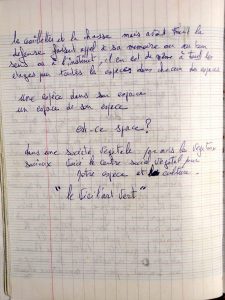 la cueillette et la chasse mais avant tout la
défense faisant appel à sa mémoire ou au bon
sens ou à l'instant, il en est de même à tous les
étages pour toutes les espèces dans chacun des espaces
une espèce dans son espace
un espace de son espèce
est-ce space ?
dans une société végétale
voici le centre social végétal pour
notre espèce et culture.
"le vieil art vert"